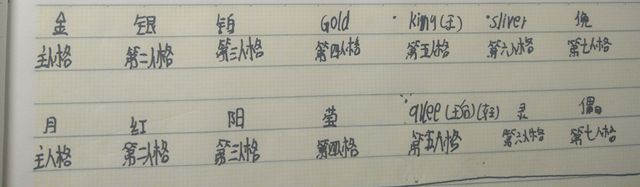 金 银 铂 Gold ·King(王) ·sliver 傀
主人格 第二人格 第三人格 第四人格 第五人格 第六人格 第七人格
月 红 阳 萤 ·quee(王后)(车) 灵 儡
主人格 第二人格 第三人格 第四人格 第五人格 第六人格 第七人格